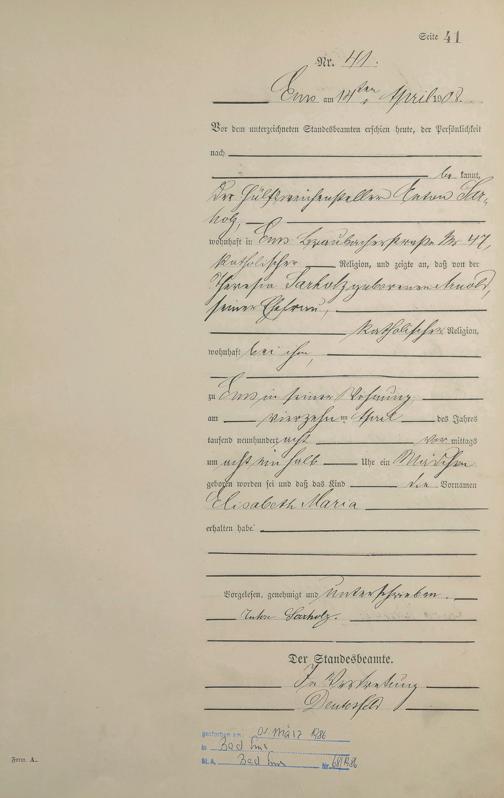 Seite 41
Nr. 41.
Ems am 14ten April 1908.
Vor dem unterzeichneten Standesbeamten erschien heute, der Persönlichkeit
nach
be kannt,
der Hülfsweichensteller Anton Sar-
holz,
wohnhaft in Ems Braubacherstraße Nr 47,
katholischer Religion, und zeigte an, daß von der
Theresia Sarholz geborenen Arnold,
seiner Ehefrau,
katholischer Religion,
wohnhaft bei ihm,
zu Ems in seiner Wohnung
am vierzehnten April des Jahres
tausend neunhundert acht vor mittags
um acht ein halb Uhr ein Mädchen
geboren worden sei und daß das Kind die Vornamen
Elisabeth Maria
erhalten habe
Vorgelesen, genehmigt und unterschrieben.
Anton Sarholz.
Der Standesbeamte.
In Vertretung
gestorben am 01. März 1986
in Bad Ems
St.A. Bad Ems Nr. 68/1986
Form A.